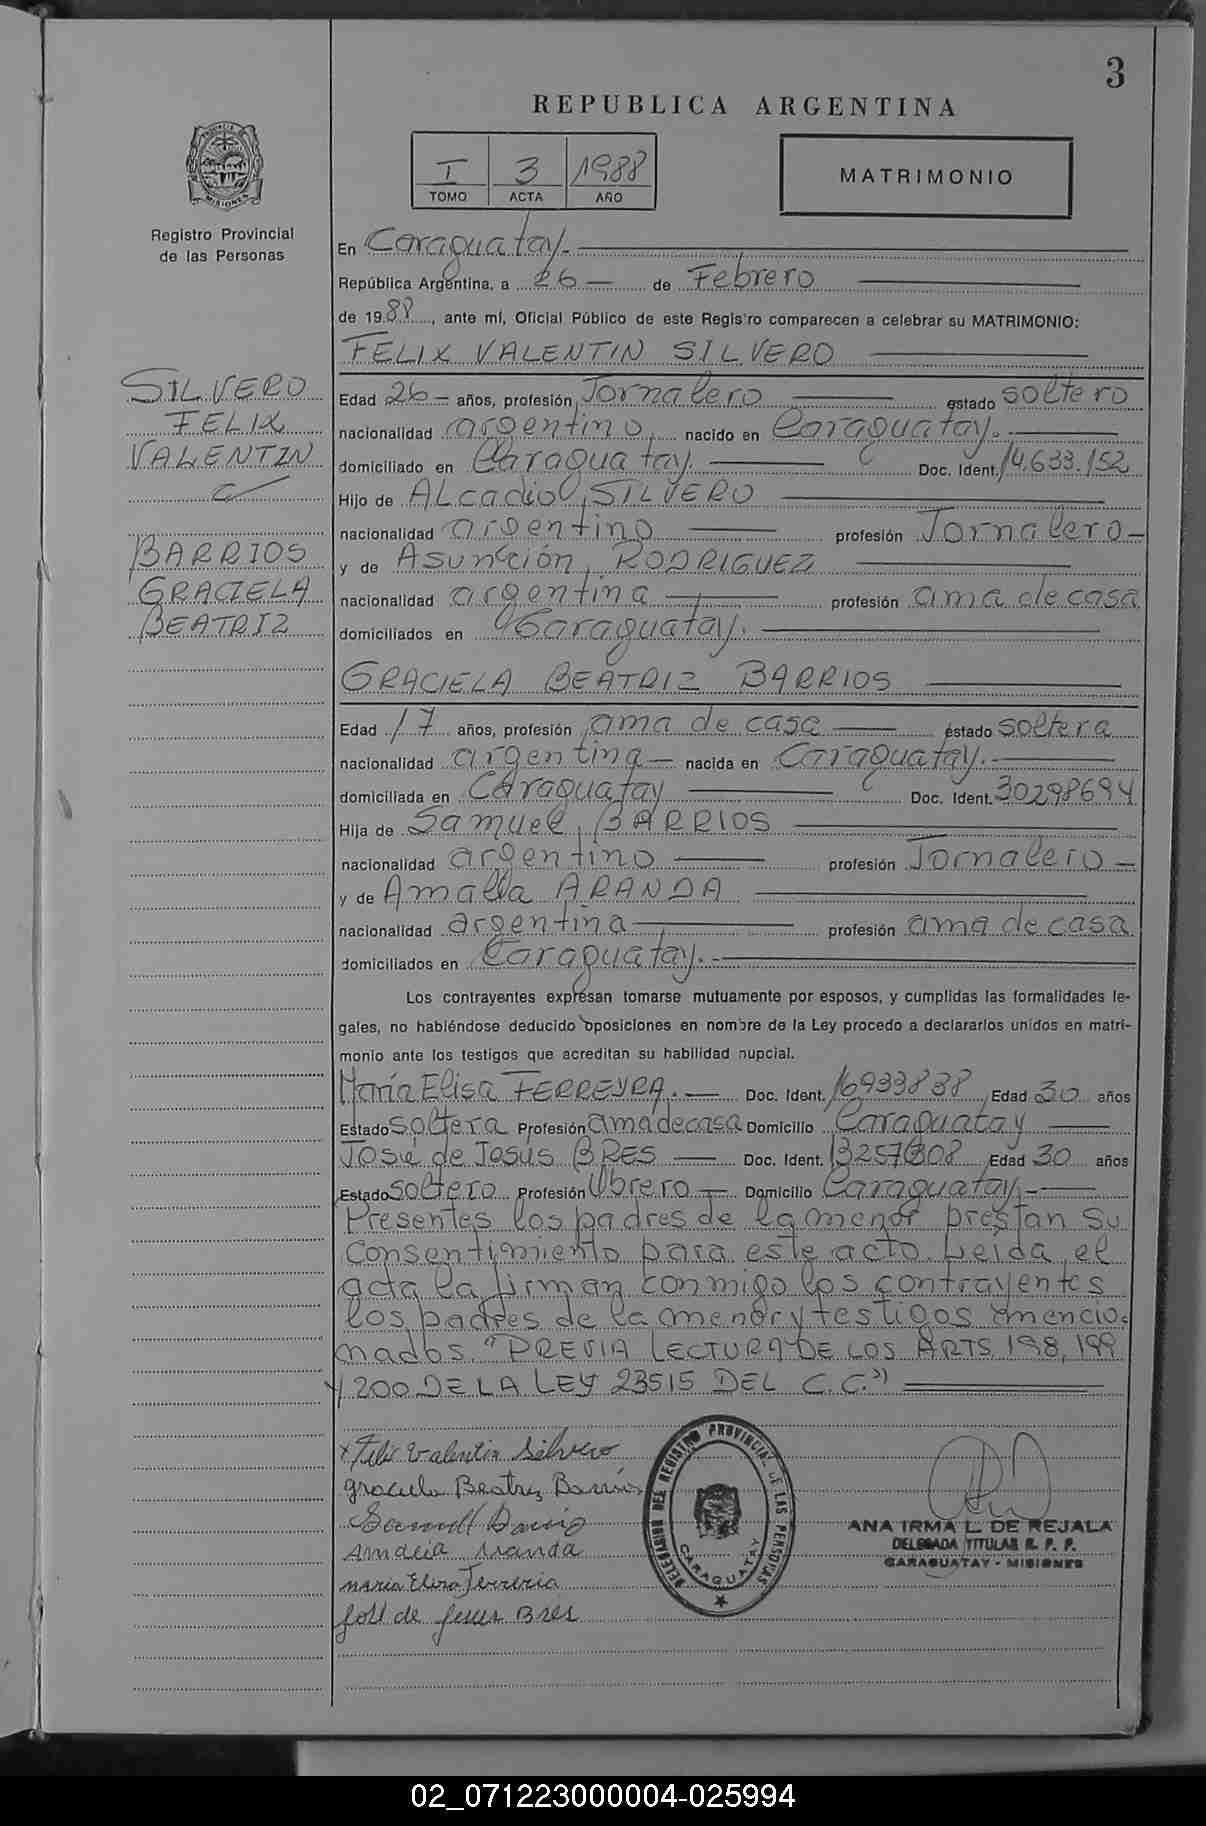 3
REPUBLICA ARGENTINA
I 3 1988
TOMO ACTA AÑO
MATRIMONIO
PROVINCIA DE MISIONES
Registro Provincial
de las Personas
SILVERO
FELIX
VALENTIN
c/
BARRIOS
GRACIELA
BEATRIZ
En Caraguatay.
República Argentina, a 26 de Febrero
de 1988, ante mí, Oficial Público de este Registro comparecen a celebrar su MATRIMONIO:
FELIX VALENTIN SILVERO
Edad 26 años, profesión Jornalero estado soltero
nacionalidad argentino, nacido en Caraguatay.
domiciliado en Caraguatay. Doc. Ident. 14.633.152
Hijo de ALcadio SILVERO
nacionalidad argentino profesión Jornalero
y de Asunción RODRIGUEZ
nacionalidad argentina profesión ama de casa
domiciliados en Caraguatay.
GRACIELA BEATRIZ BARRIOS
Edad 17 años, profesión ama de casa estado soltera
nacionalidad argentina nacida en Caraguatay.
domiciliada en Caraguatay Doc. Ident. 30298694
Hija de Samuel BARRIOS
nacionalidad argentino profesión Jornalero
y de Amalia ARANDA
nacionalidad argentina profesión ama de casa
domiciliados en Caraguatay.
Los contrayentes expresan tomarse mutuamente por esposos, y cumplidas las formalidades le-
gales, no habiéndose deducido oposiciones en nombre de la Ley procedo a declararlos unidos en matri-
monio ante los testigos que acreditan su habilidad nupcial.
María Elisa FERREYRA. Doc. Ident. 16933838 Edad 30 años
Estado soltera Profesión ama de casa Domicilio Caraguatay
José de Jesús BRES Doc. Ident. Edad 30 años
Estado soltero Profesión Obrero Domicilio Caraguatay.
Presentes los padres de la menor prestan su
consentimiento para este acto. Leída el
acta la firman conmigo los contrayentes
los padres de la menor y testigos mencio.
nados. "PREVIA LECTURA DE LOS ARTS 198, 199
y 200 DE LA LEY 23515 DEL C.C."
x Felix Valentin Silvero
Graciela Beatriz Barrios
Samuel Barrio
Amalia Aranda
maria Elisa Ferreria
José de Jesus Bres
DELEGACION DEL REGISTRO PROVINCIAL DE LAS PERSONAS
CARAGUATAY
ANA IRMA L. DE REJALA
DELEGADA TITULAR R. P. P.
CARAGUATAY - MISIONES
02_071223000004-025994